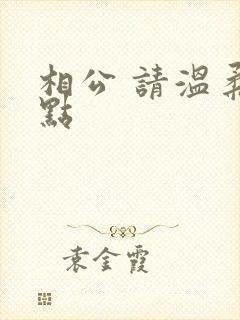 相公 請溫柔
點
袁金霞